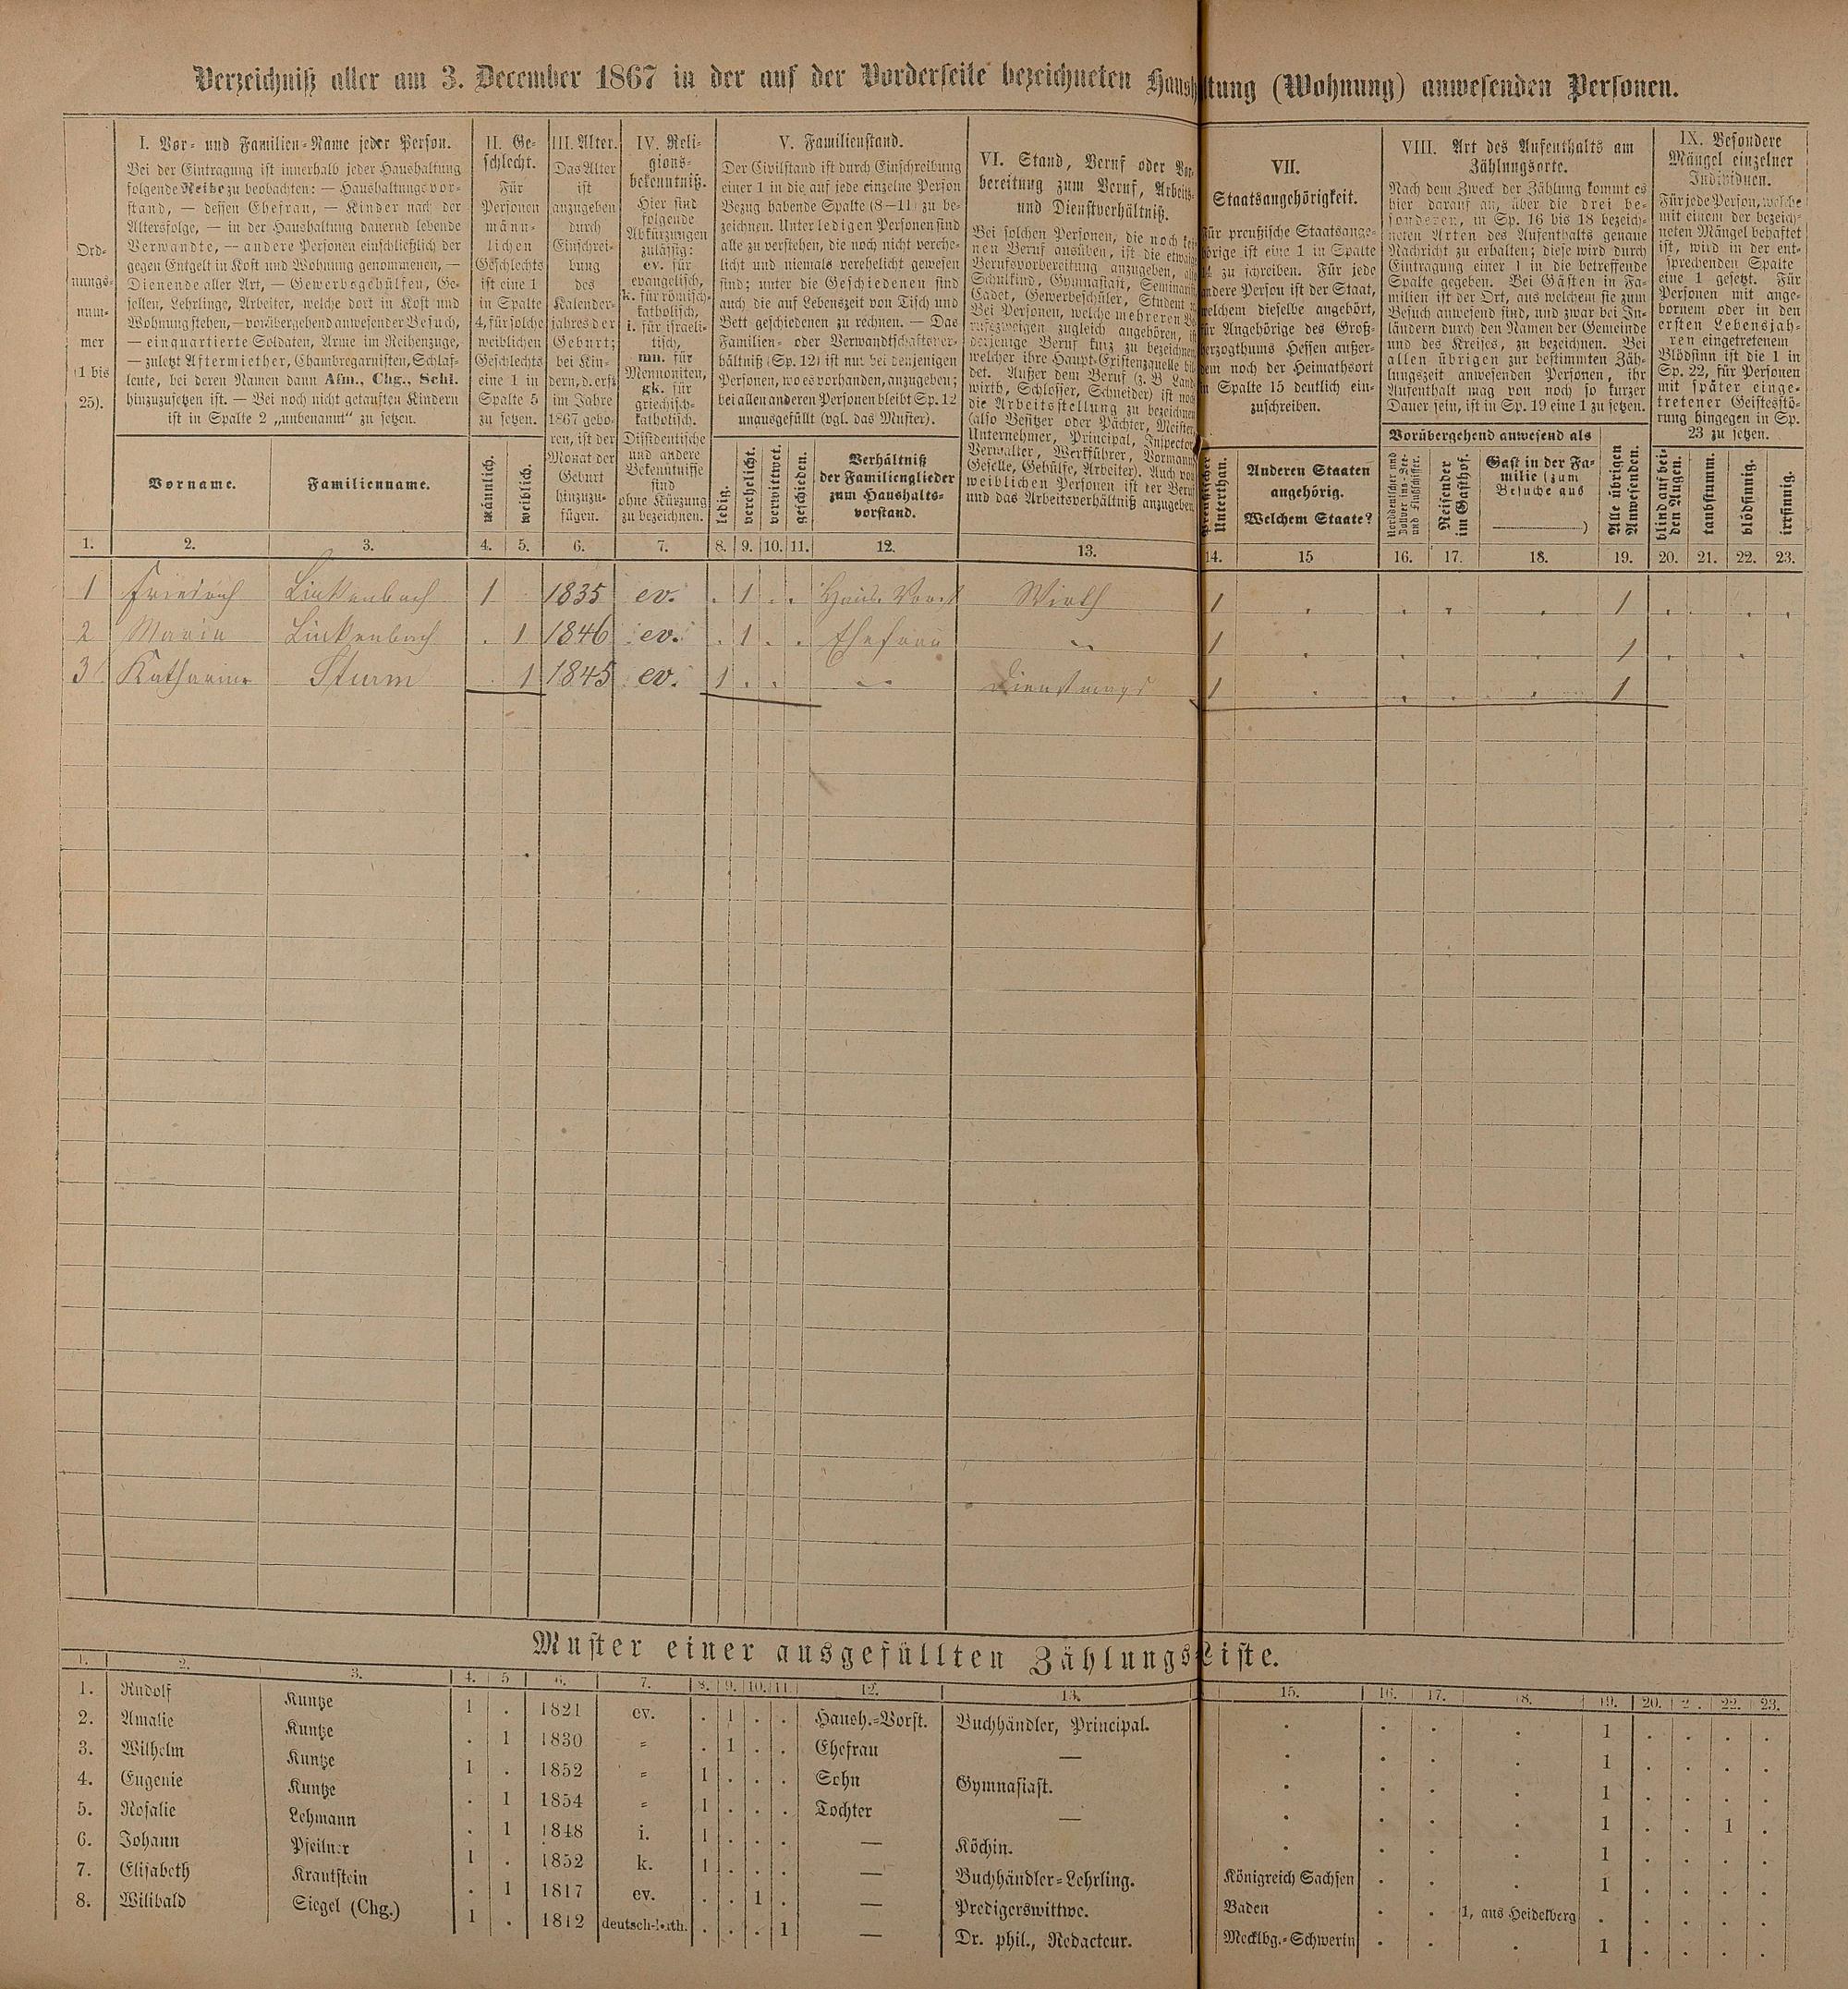 Verzeichniß aller am 3. December 1867 in der auf der Vorderseite bezeichneten Haush tung (Wohnung) anwesenden Personen.
Ord-
nungs-
num-
mer
(1 bis
25).
I. Vor- und Familien-Name jeder Person.
Bei der Eintragung ist innerhalb jeder Haushaltung
folgende Reihe zu beobachten: — Haushaltungsvor-
stand, — dessen Ehefrau, — Kinder nach der
Altersfolge, — in der Haushaltung dauernd lebende
Verwandte, — andere Personen einschließlich der
gegen Entgelt in Kost und Wohnung genommenen, —
Dienende aller Art, — Gewerbsgehülfen, Ge-
sellen, Lehrlinge, Arbeiter, welche dort in Kost und
Wohnung stehen, — vorübergehend anwesender Besuch,
— einquartierte Soldaten, Arme im Reihenzuge,
— zuletzt Aftermiether, Chambregarnisten, Schlaf-
leute, bei deren Namen dann Afm., Chg., Schl.
hinzuzusetzen ist. — Bei noch nicht getauften Kindern
ist in Spalte 2 „unbenannt“ zu setzen.
Vorname.
Familienname.
II. Ge-
schlecht.
Für
Personen
männ-
lichen
Geschlechts
ist eine 1
in Spalte
4, für solche
weiblichen
Geschlechts
eine 1 in
Spalte 5
zu setzen.
männlich.
weiblich.
III. Alter.
Das Alter
ist
anzugeben
durch
Einschrei-
bung
des
Kalender-
jahres der
Geburt;
bei Kin-
dern, d. erst
im Jahre
1867 gebo-
ren, ist der
Monat der
Geburt
hinzuzu-
fügen.
IV. Reli-
gions-
bekenntniß.
Hier sind
folgende
Abkürzungen
zulässig:
ev. für
evangelisch,
k. für römisch-
katholisch,
i. für israeli-
tisch,
mn. für
Mennoniten,
gk. für
griechisch-
katholisch.
Dissidentische
und andere
Bekenntnisse
sind
ohne Kürzung
zu bezeichnen.
V. Familienstand.
Der Civilstand ist durch Einschreibung
einer 1 in die auf jede einzelne Person
Bezug habende Spalte (8—11) zu be-
zeichnen. Unter ledigen Personen sind
alle zu verstehen, die noch nicht verehe-
licht und niemals verehelicht gewesen
sind; unter die Geschiedenen sind
auch die auf Lebenszeit von Tisch und
Bett geschiedenen zu rechnen. — Das
Familien- oder Verwandtschaftsver-
hältniß (Sp. 12) ist nur bei denjenigen
Personen, wo es vorhanden, anzugeben;
bei allen anderen Personen bleibt Sp. 12
unausgefüllt (vgl. das Muster).
ledig.
verehelicht.
verwittwet.
geschieden.
Verhältniß
der Familienglieder
zum Haushalts-
vorstand.
VI. Stand, Beruf oder Vor-
bereitung zum Beruf, Arbeits-
und Dienstverhältniß.
Bei solchen Personen, die noch
nen Beruf ausüben, ist die
Berufsvorbereitung anzugeben,
Schulkind, Gymnasiast, Seminarist
Cadet, Gewerbeschüler, Student
Bei Personen, welche mehreren
rufszweigen zugleich angehören, ist
derjenige Beruf kurz zu bezeichnen
welcher ihre Haupt-Existenzquelle bil-
det. Außer dem Beruf (z. B. Land
wirth, Schlosser, Schneider) ist noch
die Arbeitsstellung zu bezeichnen
(also Besitzer oder Pächter, Meister,
Unternehmer, Principal, Inspector,
Verwalter, Werkführer, Vormann,
Geselle, Gehülfe, Arbeiter). Auch von
weiblichen Personen ist der Beruf
und das Arbeitsverhältniß anzugeben
VII.
Staatsangehörigkeit.
Für preußische Staatsange-
hörige ist eine 1 in Spalte
14 zu schreiben. Für jede
andere Person ist der Staat,
welchem dieselbe angehört,
für Angehörige des Groß-
herzogthums Hessen außer-
dem noch der Heimathsort
in Spalte 15 deutlich ein-
zuschreiben.
Preußischer
Unterthan.
Anderen Staaten
angehörig.
Welchem Staate?
VIII. Art des Aufenthalts am
Zählungsorte.
Nach dem Zweck der Zählung kommt es
hier darauf an, über die drei be-
sonderen, in Sp. 16 bis 18 bezeich-
neten Arten des Aufenthalts genaue
Nachricht zu erhalten; diese wird durch
Eintragung einer 1 in die betreffende
Spalte gegeben. Bei Gästen in Fa-
milien ist der Ort, aus welchem sie zum
Besuch anwesend sind, und zwar bei In-
ländern durch den Namen der Gemeinde
und des Kreises, zu bezeichnen. Bei
allen übrigen zur bestimmten Zäh-
lungszeit anwesenden Personen, ihr
Aufenthalt mag von noch so kurzer
Dauer sein, ist in Sp. 19 eine 1 zu setzen.
Vorübergehend anwesend als
Norddeutscher und
Zollvereins-See-
und Flußschiffer.
Reisender
im Gasthof.
Gast in der Fa-
milie (zum
Besuche aus
)
Alle übrigen
Anwesenden.
IX. Besondere
Mängel einzelner
Individuen.
Für jede Person, welche
mit einem der bezeich-
neten Mängel behaftet
ist, wird in der ent-
sprechenden Spalte
eine 1 gesetzt. Für
Personen mit ange-
bornem oder in den
ersten Lebensjah-
ren eingetretenem
Blödsinn ist die 1 in
Sp. 22, für Personen
mit später einge-
tretener Geistesstö-
rung hingegen in Sp.
23 zu setzen.
blind auf bei-
den Augen.
taubstumm.
blödsinnig.
irrsinnig.
1. 2. 3. 4. 5. 6. 7. 8. 9. 10. 11. 12. 13. 14. 15 16. 17. 18. 19. 20. 21. 22. 23.
1 Friedrich Linkenbach 1 1835 ev. . 1 . . Haus. Vorst Wirth 1 . . . . 1 . . . .
2 Maria Linkenbach . 1 1846 ev. . 1 . . Ehefrau „ 1 . . . . 1 . .
3 Katharine Sturm . 1 1845 ev. 1 . . „ Dienstmagd 1 . . . . 1
Muster einer ausgefüllten Zählungsliste.
1. 2. 3. 4. 5 6. 7. 8. 9. 10. 11. 12. 13. 15. 16. 17. 18. 19. 20. 2 . 22. 23.
1. Rudolf Kuntze 1 . 1821 ev. . 1 . . Haush.-Vorst. Buchhändler, Principal. . . . . 1 . . . .
2. Amalie Kuntze . 1 1830 „ . 1 . . Ehefrau — . . . . 1 . . . .
3. Wilhelm Kuntze 1 . 1852 „ 1 . . . Sohn Gymnasiast. . . . . 1 . . . .
4. Eugenie Kuntze . 1 1854 „ 1 . . . Tochter — . . . . 1 . . 1 .
5. Rosalie Lehmann . 1 1848 i. 1 . . . — Köchin. . . . . 1 . . . .
6. Johann Pfeilner 1 . 1852 k. 1 . . . — Buchhändler-Lehrling. Königreich Sachsen . . . 1 . . . .
7. Elisabeth Krautstein . 1 1817 ev. . . 1 . — Predigerswittwe. Baden . . 1, aus Heidelberg . . . . .
8. Wilibald Siegel (Chg.) 1 . 1812 deutsch-kath. . . . 1 — Dr. phil., Redacteur. Mecklbg.-Schwerin . . . 1 . . . .